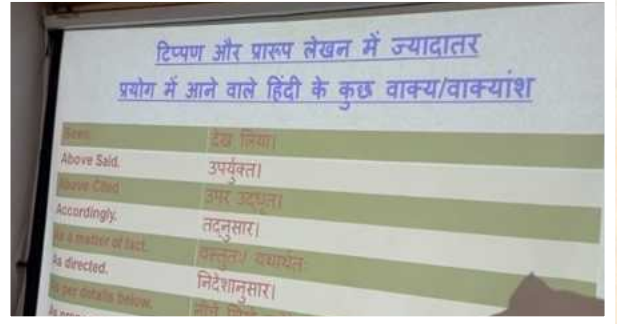 टिप्पण और प्रारूप लेखन में ज्यादातर
प्रयोग में आने वाले हिंदी के कुछ वाक्य/वाक्यांश
Seen. देख लिया।
Above Said. उपर्युक्त।
Above Cited उपर उद्धृत।
Accordingly. तद्नुसार।
As a matter of fact. वस्तुतः/ यथार्थतः
As directed. निदेशानुसार।
As per details below. नीचे लिखे